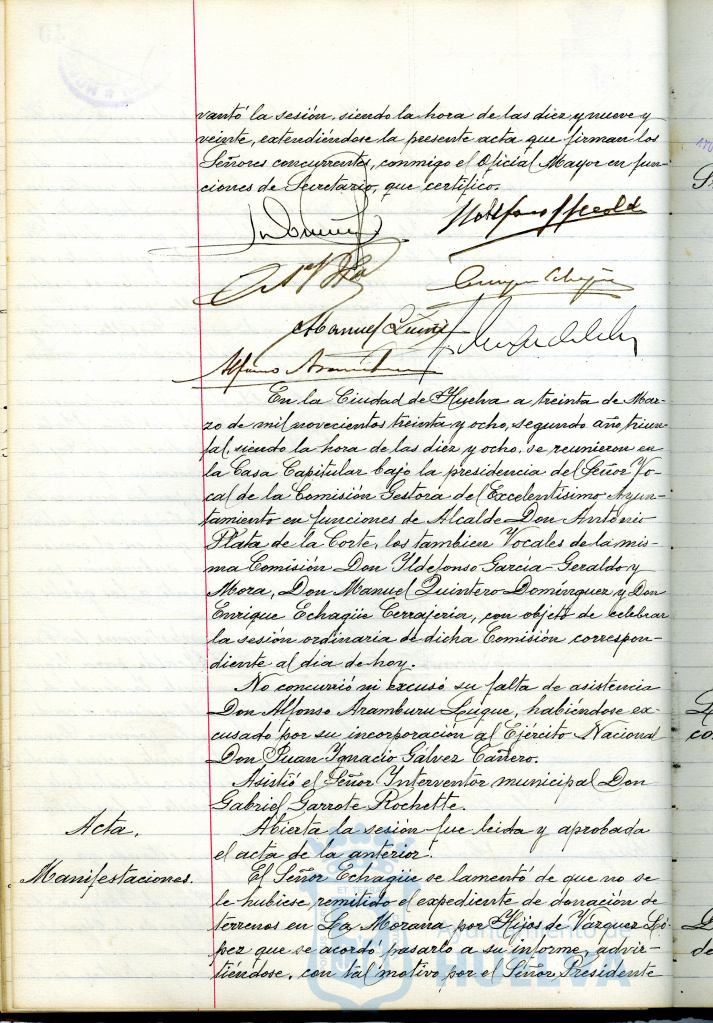 vantó la sesión, siendo la hora de las diez y nueve y
veinte, extendiéndose la presente acta que firman los
Señores concurrentes, conmigo el Oficial Mayor en fun-
ciones de Secretario, que certifico.
Manuel Quint
Alfonso Aramburu
En la Ciudad de Huelva a treinta de Mar-
zo de mil novecientos treinta y ocho, segundo año triun-
fal, siendo la hora de las diez y ocho, se reunieron en
la Casa Capitular bajo la presidencia del Señor Vo-
cal de la Comisión Gestora del Excelentísimo Ayun-
tamiento en funciones de Alcalde Don Antonio
Plata de la Corte, los tambien Vocales de la mis-
ma Comisión Don Ildefonso García-Geraldo y
Mora, Don Manuel Quintero Domínguez y Don
Enrique Echagüe Cerrajería, con objeto de celebrar
la sesión ordinaria de dicha Comisión correspon-
diente al dia de hoy.
No concurrió ni excusó su falta de asistencia
Don Alfonso Aramburu Luque, habiéndose ex-
cusado por su incorporación al Ejército Nacional
Don Juan Ygnacio Gálvez Cañero.
Asistió el Señor Interventor municipal Don
Gabriel Garrote Rochette.
Acta.
Abierta la sesión fue leida y aprobada
el acta de la anterior.
Manifestaciones.
El Señor Echagüe se lamentó de que no se
le hubiese remitido el expediente de donación de
terrenos en La Morana por Hijos de Vázquez Ló-
pez que se acordó pasarlo a su informe, advir-
tiéndose, con tal motivo por el Señor Presidente
Ayuntamiento de
HUELVA